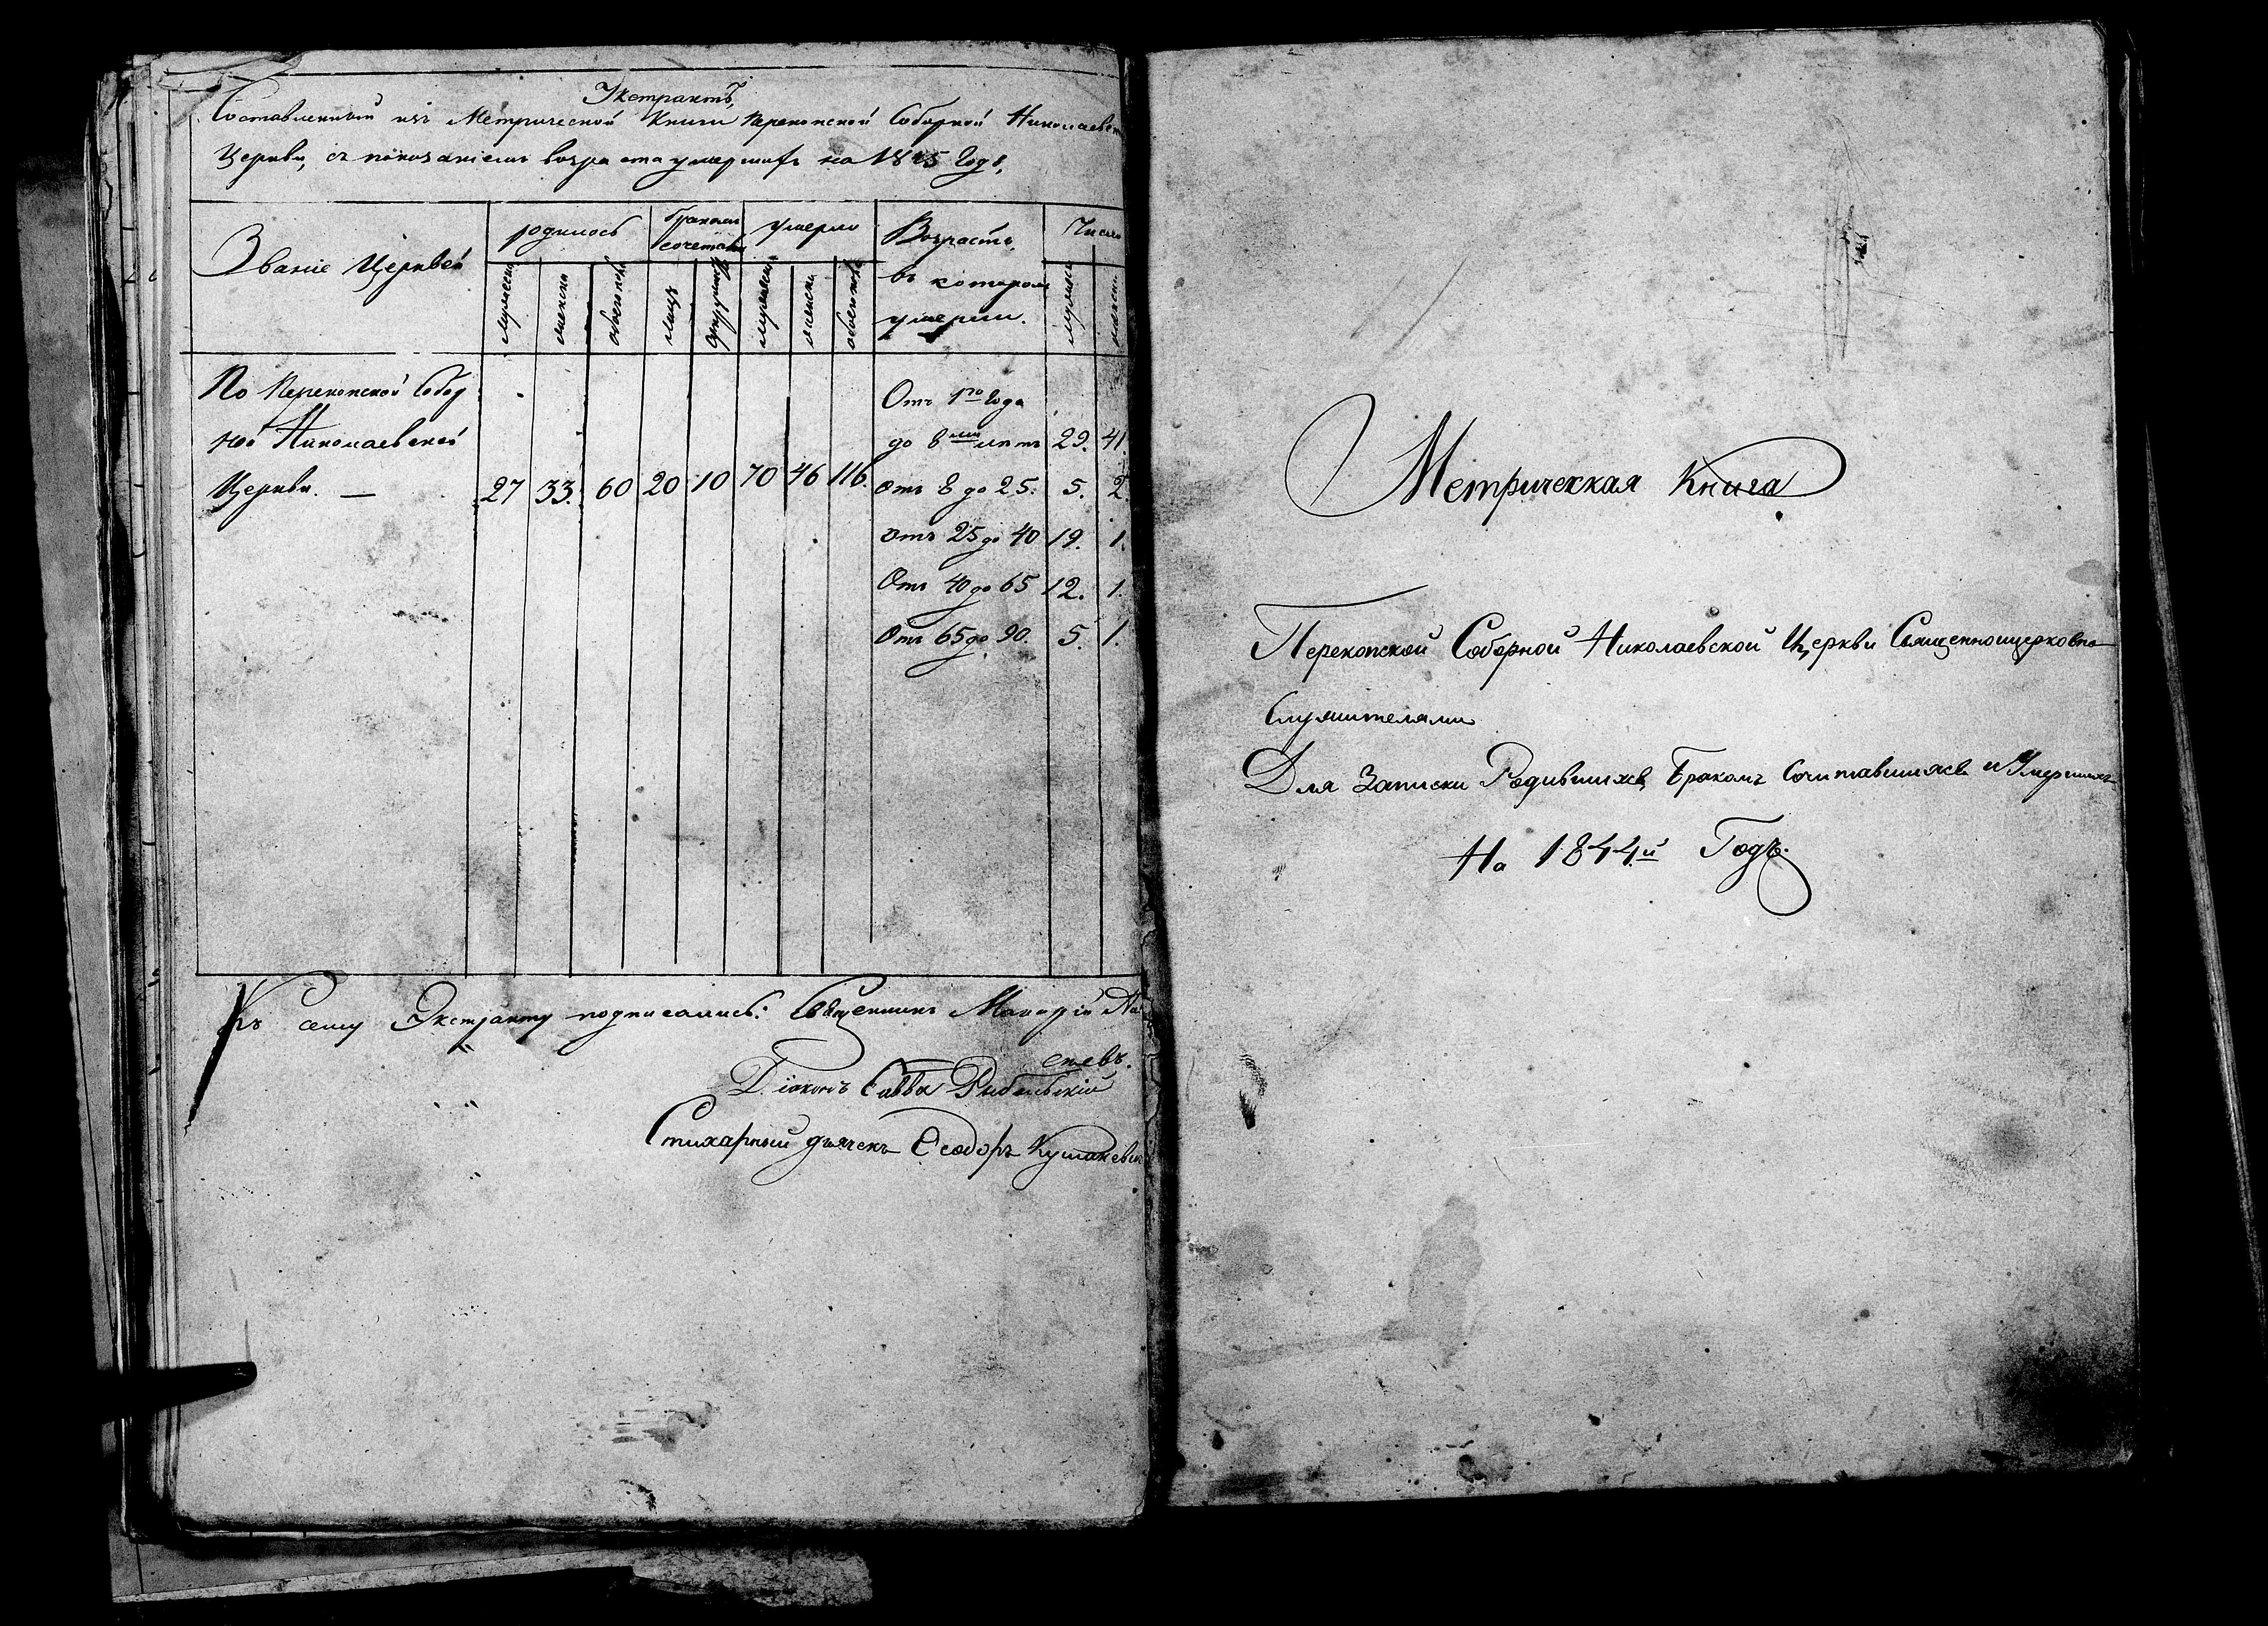 Экстрактъ,
Составленный изъ Метрической Книги Перекопской Соборной Николаевск
Церкви, съ показаніемъ возраста умершихъ на 1845 Годъ,
Званіе Церквей
родилось
бракомъ сочетан
умерло
Возрастъ въ которомъ умерли.
Число
мужеска
женска
обоего пола
лицъ
супружествъ
мужеска
женска
обоего пола
мужеска
женска
По Перекопской Собор
ной Николаевской
Церкви. — 27 33. 60 20 10 70 46 116.
Отъ 1го Года
до 8ми лѣтъ 29. 41.
отъ 8 до 25. 5. 2.
отъ 25 до 40 19. 1.
Отъ 40 до 65 12. 1.
Отъ 65 до 90. 5. 1.
Къ сему Экстракту подписались: Священникъ Макарій
Діаконъ Савва
Стихарный дьячекъ Ѳеодоръ
Метрическая Книга
Перекопской Соборной Николаевской Церкви Священноицерковно
Служителями
Для Записки Родившихся, Бракомъ Сочитавшихся и Умершихъ
На 1844й Годъ.